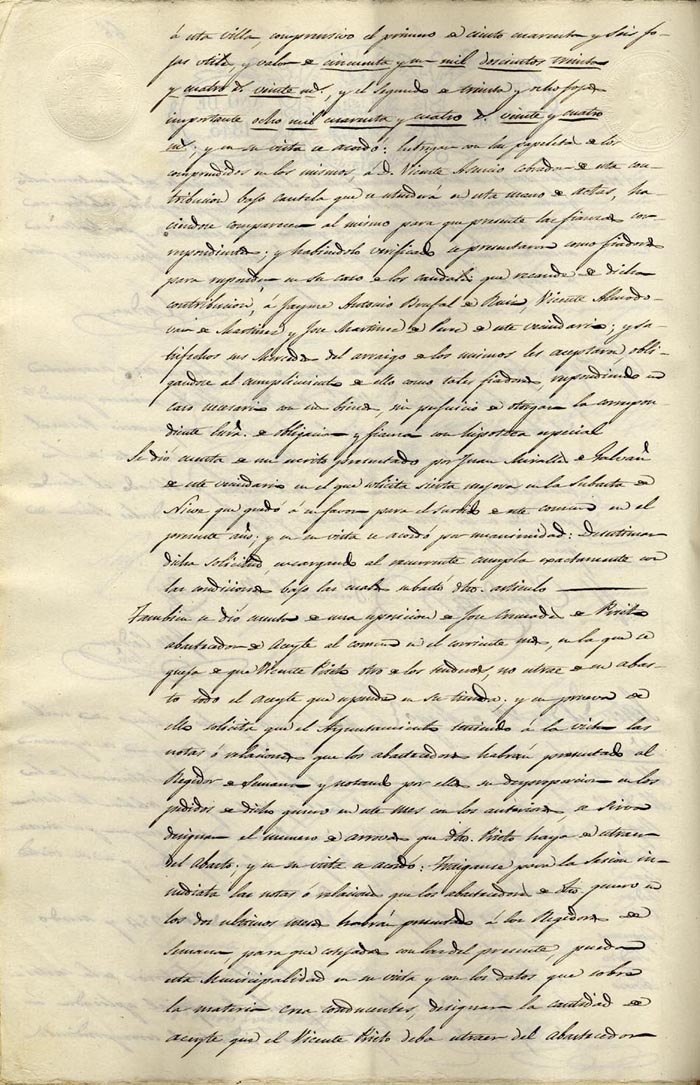 á esta villa, comprensivo el primero de ciento cuarenta y seis fo-
jas utiles, y valor de cincuenta y un mil doscientos treinta
y cuatro rs. veinte ms., y el segundo de treinta y ocho fojas
importante ocho mil cuarenta y cuatro rs. veinte y cuatro
ms.; y en su vista se acordó: entreguen con las papeletas de los
comprendidos en los mismos, á D. Vicente Asencio cobrador de esta con-
tribucion bajo cautela que se estenderá en esta mano de actas, ha-
ciendose comparecer al mismo para que presente las fianzas cor-
respondientes; y habiendolo verificado se presentaron como fiadores
para responder en su caso de los caudales que recaude de dicha
contribucion, á Jayme Antonio Brufal de Ruiz, Vicente Almodo-
var de Martinez y Jose Martinez de de este vecindario; y sa-
tisfechos sus Mercedes del arraigo de los mismos les aceptaron obli-
gandose al cumplimiento de ello como tales fiadores, respondiendo en
caso necesario con sus bienes, sin perjuicio de otorgar la correspon-
diente Escra. de obligacion y fianza con hipoteca especial
Se dió cuenta de un escrito presentado por Juan Miralles de Galvañ
de este vecindario en el que solicita cierta mejora en la subasta de
Nieve que quedó á su favor para el surtido de este comun en el
presente año; y en su vista se acordó por unanimidad: Desestimar
dicha solicitud encargando al recurrente cumpla exactamente con
las condiciones bajo las cuales subastó dho. articulo
Tambien se dió cuenta de una esposicion de Jose Quesada de Prieto
abastecedor de Aceyte al comun en el corriente mes, en la que se
queja de que Vicente Prieto otro de los tenderos, no estrae de su abas-
to todo el Aceyte que espende en su tienda; y en prueva de
ello solicita que el Ayuntamiento teniendo á la vista las
notas ó relaciones que los abastecedores habrán presentado al
Regidor de Semana y notando por ellas su desproporcion en los
pedidos de dicho genero en este mes con los anteriores, se sirva
designar el numero de arrovas que dho. Prieto haya de estraer
del Abasto; y en su vista se acordó: Traigance para la Sesion in-
mediata las notas ó relaciones que los abastecedores de dho. genero en
los dos ultimos meses habrán presentado á los Regidores de
Semana, para que cotejadas con las del presente pueda
esta Municipalidad en su vista y con los datos que sobre
la materia crea conducentes, designar la cantidad de
aceyte que el Vicente Prieto deba estraer del abastecedor